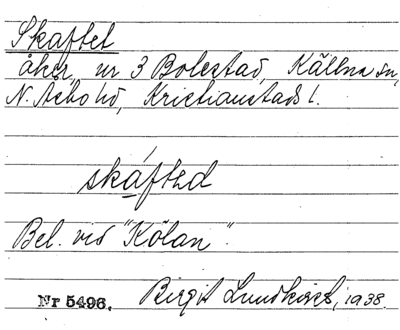 Skaftet
åker, nr 3 Bolestad, Källna sn,
N. Åsbo hd, Kristianstads l.
skáftəd
Bel. vid "Kölan".
Nr 5496. Birgit Lundkvist, 1938.